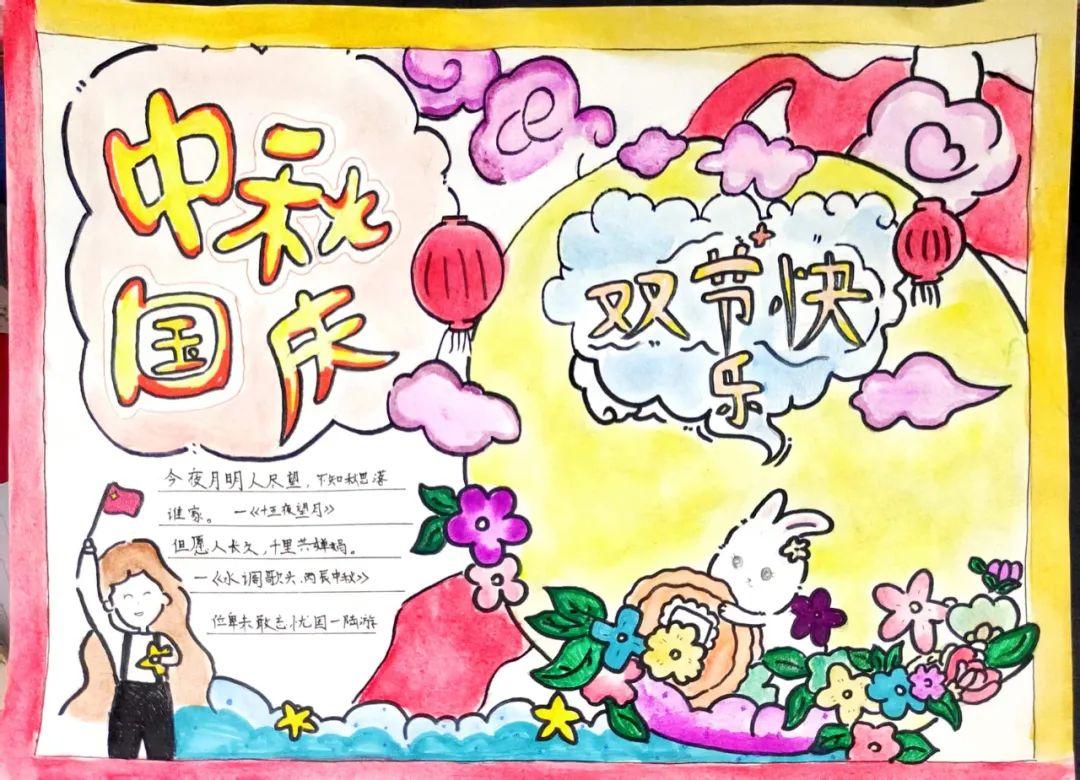 中秋
国庆
双节快
乐
今夜月明人尽望,不知秋思落
谁家。 —《十五夜望月》
但愿人长久,千里共婵娟。
—《水调歌头.丙辰中秋》
位卑未敢忘忧国—陆游